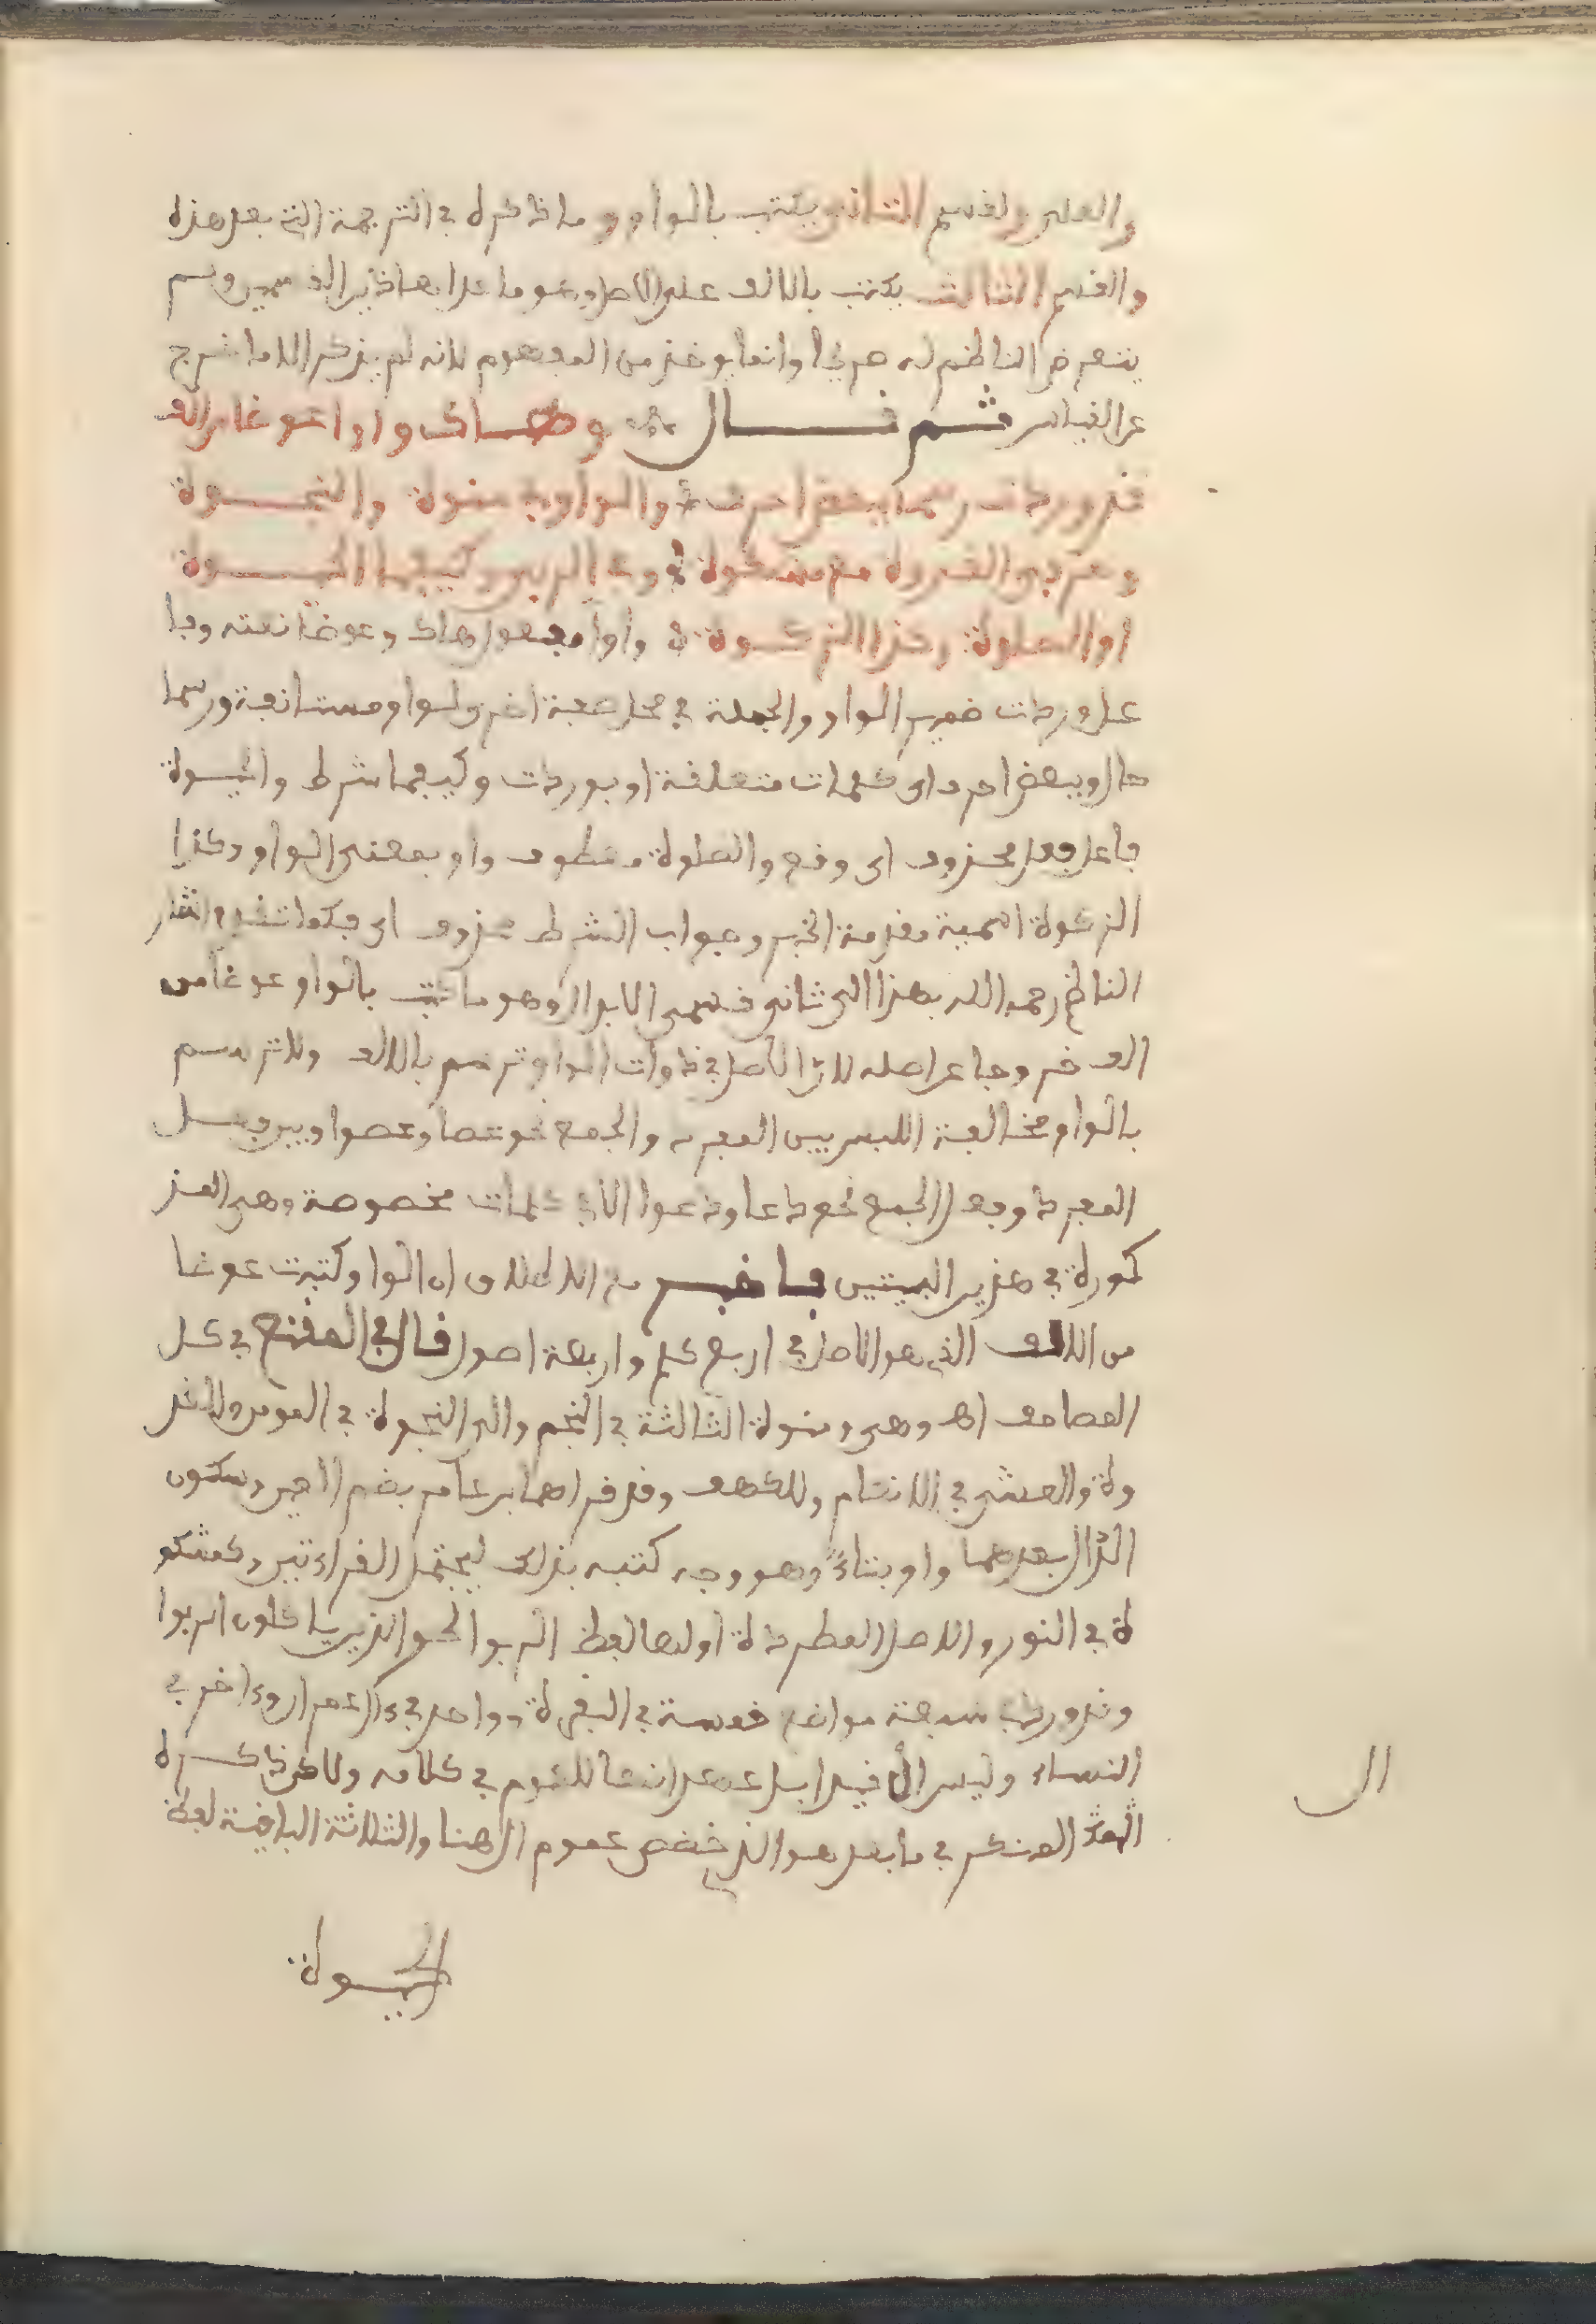 والعلى والقسم الثانى يكتب بالواو و ما ذكره في الترجمة التي بعد هذه
والقسم الثالث يكتب بالالف على الاصل وهو ما عدا هاذين القسمين ولم
يتعرض الناظم له صريحا وانما يوخذ من المفهوم لانه لم يذكر الا ما خرج
عن القياس ثم قال وهاك واوا عوضا من الف
قد وردت رسما ببعض احرف والواو في منوة والنجوة
وحرفي الغدوة مع مشكوة وفي الربو وكيفما الحيوة
او الصلوة وكذا الزكوة واوا مفعول هاك وعوضا نعته وفا
عل وردت ضمير الواو والجملة في محل صفة اخرى لواو مستانفة ورسما
حال وببعض احرف اى كلمات متعلقة او بوردت وكيفما شرط والحيوة
فاعل فعل محذوف اى وقع والصلوة معطوف واو بمعنى الواو وكذا
الزكوة اسمية مقدمة الخبر وجواب الشرط محذوف اى فكما تقدم اشار
الناظم رحمه الله بهذا الى ثانى قسمى الابدال وهو ما كتب بالواو عوضا من
الف خروجا عن اصله لان الاصل في ذوات الواو ترسم بالالف ولا ترسم
بالواو مخالفة اللبس بين المفرد والجمع نحو عصا وعصوا وبين فعل
المفرد وفعل الجمع نحو دعا ودعوا الا في كلمات مخصوصة وهى المذ
كورة في هذين البيتين فاخبر مع الاطلاق ان الواو كتبت عوضا
من الالف الذى هو الاصل في اربع كلم واربعة اصول قال في المقنع في كل
المصاحف اهـ وهى ومنوة الثالثة في النجم والى النجوة في المومن وبالغد
وة والعشى في الانعام والكهف وقد قراهما ابن عامر بضم الغين وسكون
الدال بعدهما واو بتاء وهو وجه كتبه بذلك ليحتمل القراءتين وكمشكو
ة في النور والاصل المطردة اولها لفظ الربوا نحو الذين ياكلون الربوا
وقد وردت سبعة مواضع خمسة في البقرة وواحد في ءال عمران وءاخر في
النساء وليس ال قيدا بل عهدا اتباعا للعموم في كلامه ولاكن ذكره
الهاء المنكر في ما بعد هو الذى خصص عموم ال هنا والثلاثة الباقية لفظ
الحيوة
ال